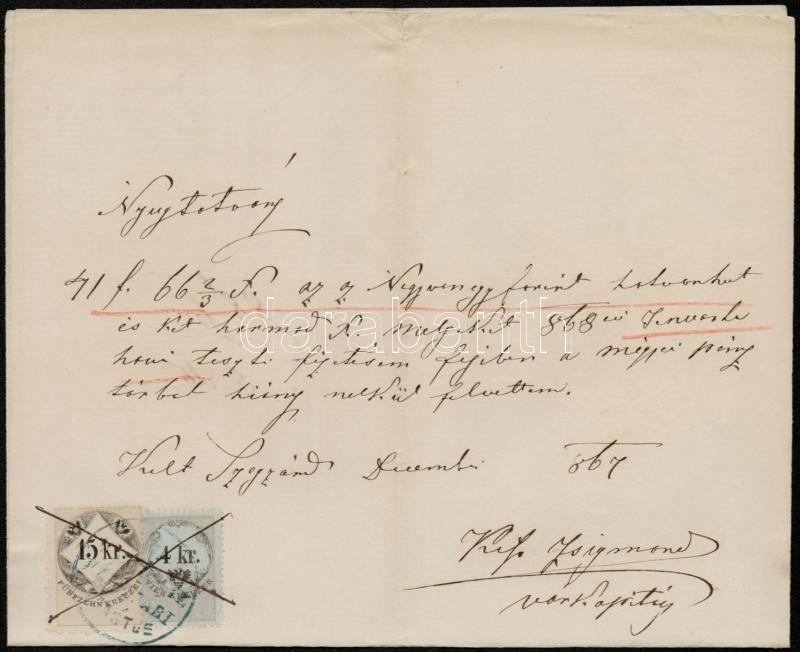 Nyugtatvány
41 f. 66 2/3 K. az az Negyvenegy forint hatvanhat
és két harmad K. melyeket 868 évi Januarhó
havi tiszti fizetésem fejében a megyei pénz
tárbol hiány nélkül felvettem.
Kelt Szegzárd December 867
Kiss Zsigmond
várkapitány
15 kr.
FÜNFZEHN KREUZER
4 kr.
VIER KREUZER
darabanth